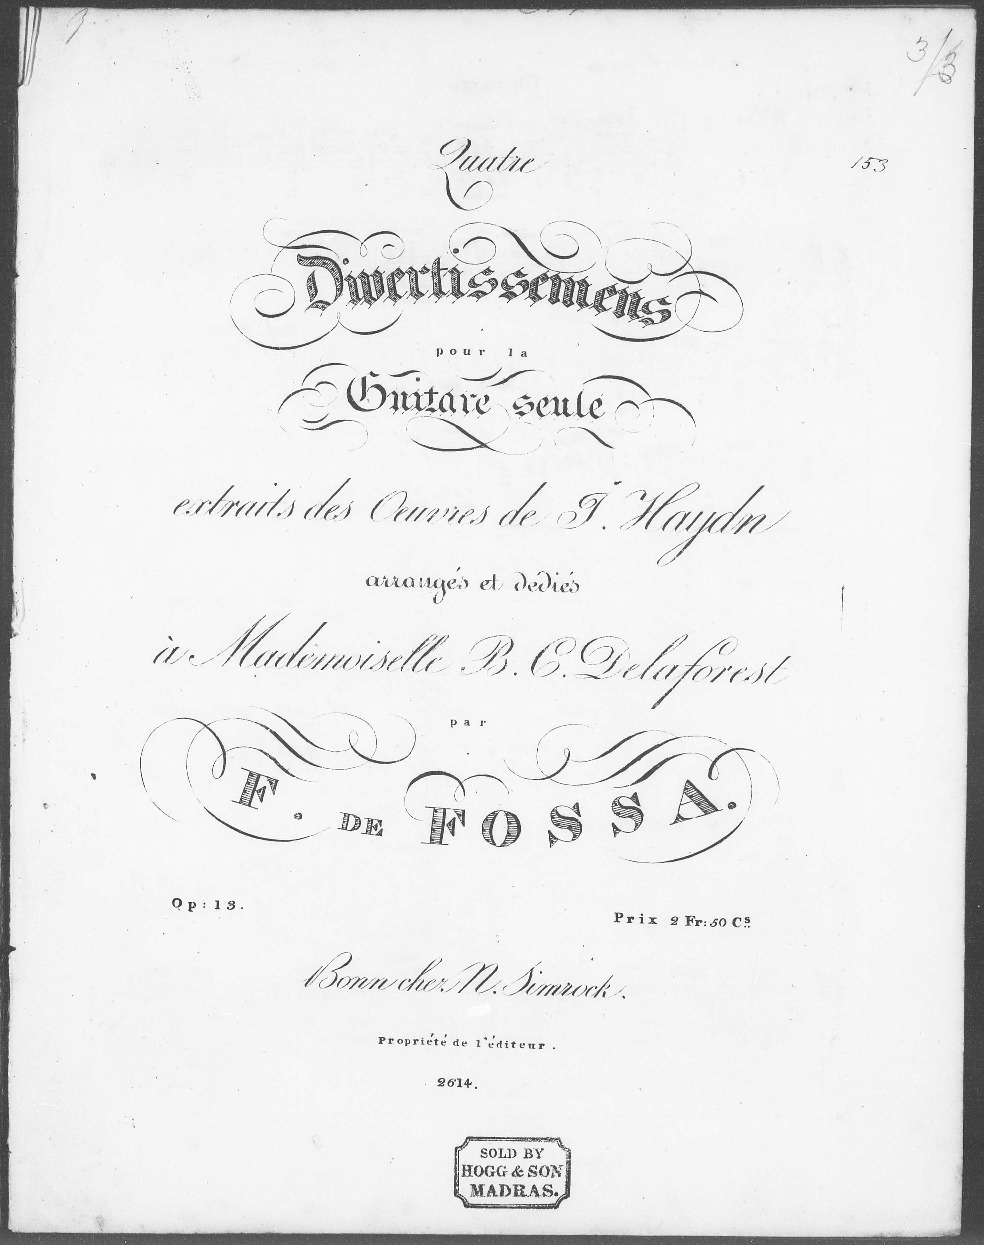 3/3
153
Quatre
Divertissemens
pour la
Guitare seule
extraits des Oeuvres de J. Haydn
arrangés et dediés
à Mademoiselle B. C. Delaforest
par
F. DE FOSSA.
Op: 13.
Prix 2 Fr: 50 Cs.
Bonn chez N. Simrock.
Propriété de l'éditeur.
2614.
SOLD BY
HOGG & SON
MADRAS.